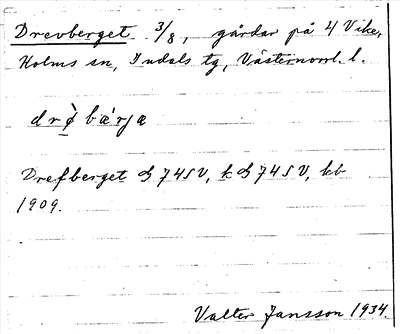 Drevberget 3/8, gårdar på 4 Vike,
Holms sn, Indals tg, Västernorrl. l.
drǫ̀ bærja
Drefberget G 74 SV, k G 74 SV, kb
1909.
Valter Jansson 1934.